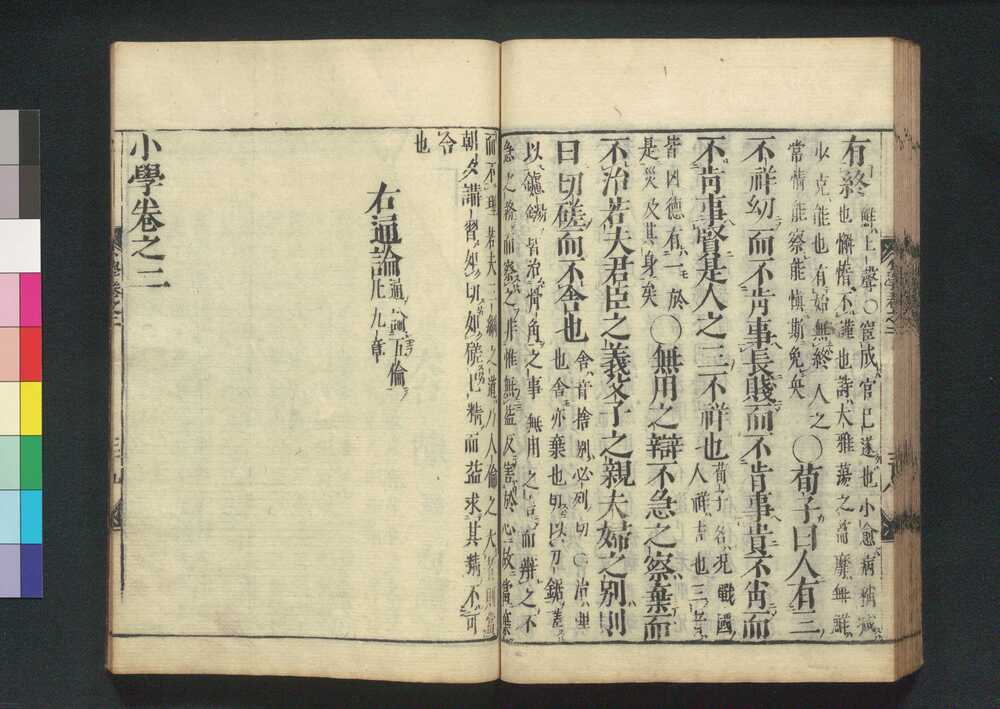 有終 鮮上聲○宦成官已遂也小愈病稍減
也懈惰不謹也詩大雅蕩之篇靡無鮮
少克能也有始無終人之
常情能察能愼斯免矣
○荀子曰人有三
不祥幼而不肯事長賤而不肯事貴不肖而
不肯事賢是人之三不祥也
荀子名況戰國
人祥吉也三者
皆凶德有一於
是災及其身矣
○無用之辯不急之察棄而
不治若夫君臣之義父子之親夫婦之別則
日切磋而不舍也
舍音捨別必列切○治理
也舍亦棄也切以刀鋸磋
以鑢鐋皆治骨角之事無用之言而辯之不
急之務而察之非惟無益反害於心故當棄
而不理若夫三綱之道乃人倫之大者則當
朝夕講習如切如磋已精而益求其精不可
舍
也
右通論
通論五倫
凡九章
小學卷之二